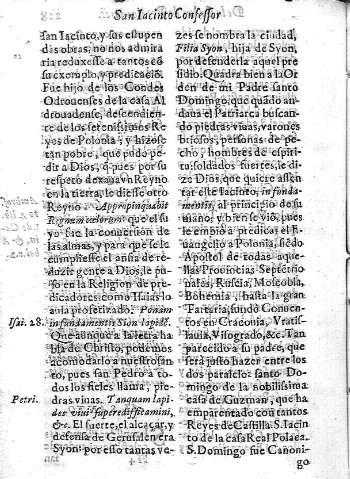 San Iacinto Confessor
san Iacinto, y sus estupen
das obras, no nos admira
ria reduxesse a tantos cõ
su exemplo, y predicaciõ.
Fue hijo de los Condes
Odrouenses de la casa Al
drouadense, descendien-
te de los serenissimos Re
yes de Polonia; y hizose
tan pobre, que pudo pe-
dir a Dios, q̃ pues por su
respeto dexaua vn Reyno
en la tierra, le diesse otro
Reyno. Appropinquabit
Regnum cælorum: que el su
yo fue la conuersion de
las almas, y para que se le
cumpliesse el ansia de re-
duzir gente a Dios, le pu
so en la Religion de pre-
dicadores: como Isaias lo
auia profetizado. Ponam
Isai. 28. in fundamentis Sion lapidẽ.
Que aunque a la letra ha
bla de Christo, podemos
acomodarlo a nuestro san
to, pues san Pedro a to-
dos los fieles llama, pie-
Petri. dras viuas. Tanquam lapi
des viui superædificamini,
&c. El fuerte, el alcaçar, y
defensa de Gerusalen era
Syon: por esso tantas ve-
zes se nombra la ciudad,
Filia Syon, hija de Syon,
por defenderla aquel pre
sidio. Quadra bien a la Or
den de mi Padre santo
Domingo, que quãdo an-
daua el Patriarca buscan-
do piedras viuas, varones
briosos, personas de pe-
cho, hombres de espiri-
tu, soldados fuertes, le di-
ze Dios, que quiere assen
tar este Iacinto, in funda-
mentis, al principio de su
mano; y bien se viò, pues
le empiò a predicar el E-
uangelio a Polonia, siẽdo
Apostol de todas aque-
llas Prouincias Septẽtrio
nales, Ruscia, Moscobia,
Bohemia, hasta la gran
Tartaria, fundò Conuen-
tos en Craconia, Vratis-
lauia, Visogrado, &c. Tan
parecido a su padre, que
serà justo hazer entre los
dos paralelo: santo Do-
mingo de la nobilissima
casa de Guzman, que ha
emparentado con tantos
Reyes de Castilla. S. Iacin
to de la casa Real Polaca.
S. Domingo fue Canoni-
go